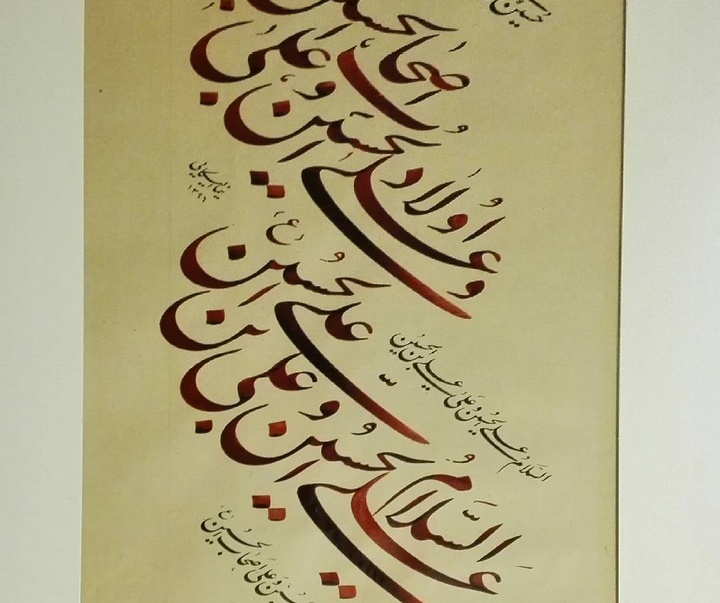 حسین
اصحاب الحسین
و علی اولاد الحسین و علی
۱۳۹۶
علی بن الحسین (ع)
السلام علی الحسین و علی علی بن الحسین
السلام علی الحسین و علی
و علی اصحاب الحسین (ع)